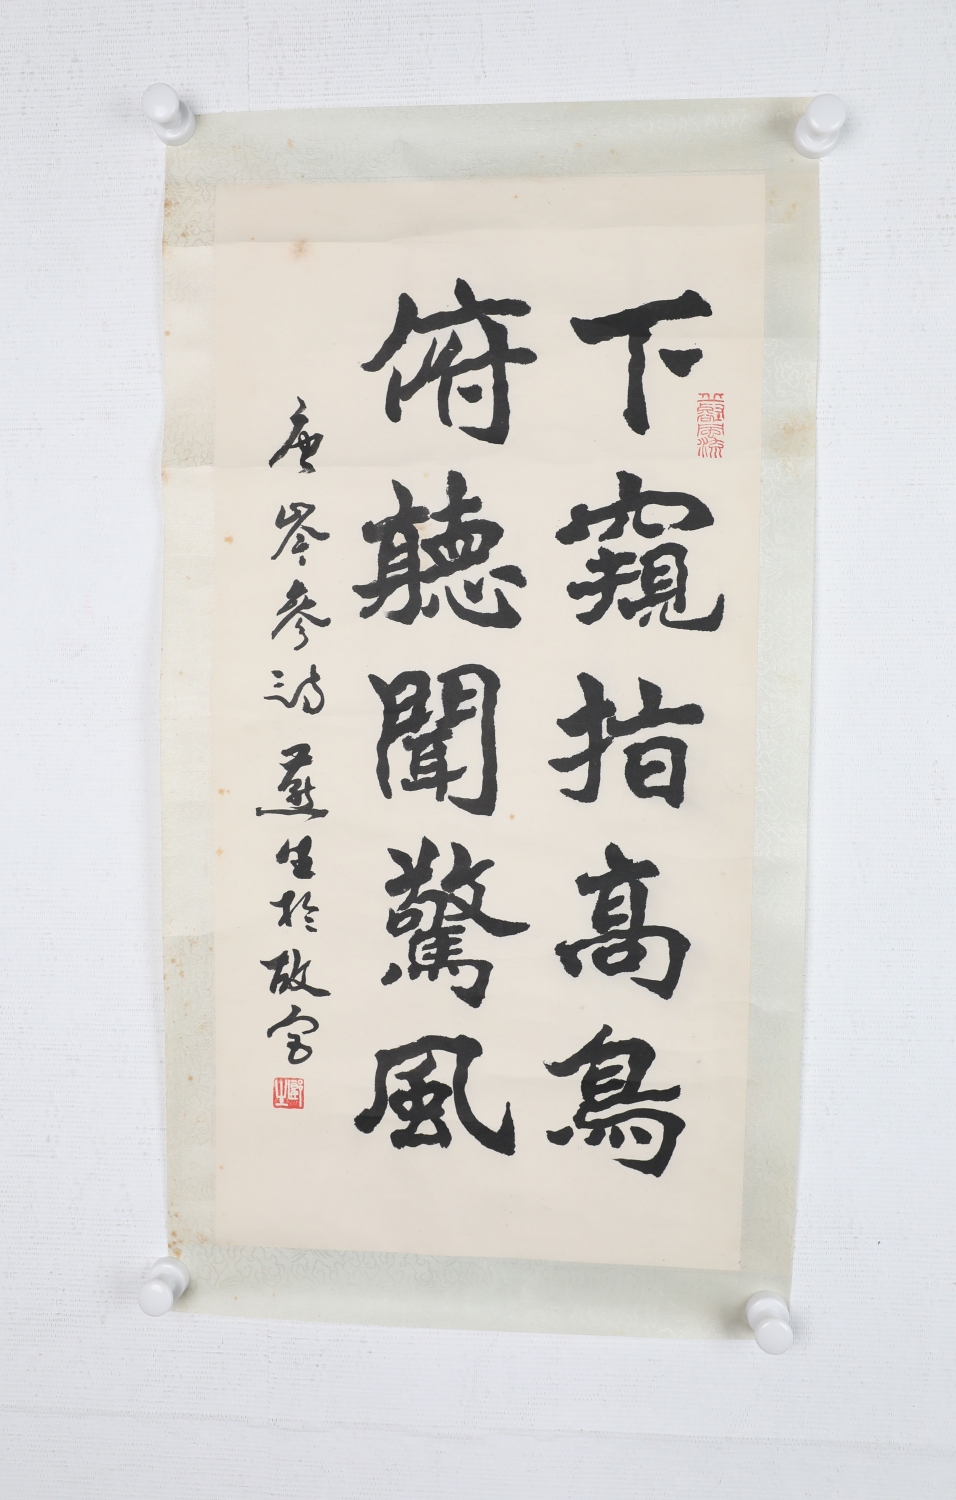 下窺指高鳥
俯聽聞驚風
唐岑參詩 燕生於故宮
燕生